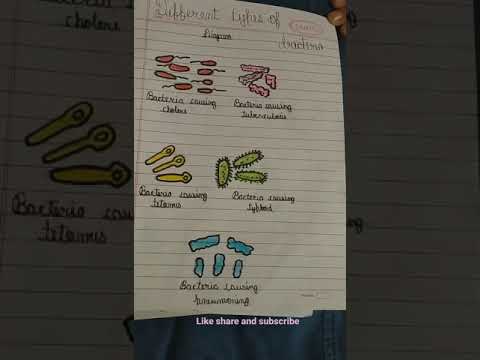 Different types of
bacteria
Diagram
Bacteria causing
cholera
Bacteria causing
tuberculosis
Bacteria causing
tetanus
Bacteria causing
typhoid
Bacteria causing
pneumoning
Like share and subscribe
Bacteria caus
tetanus